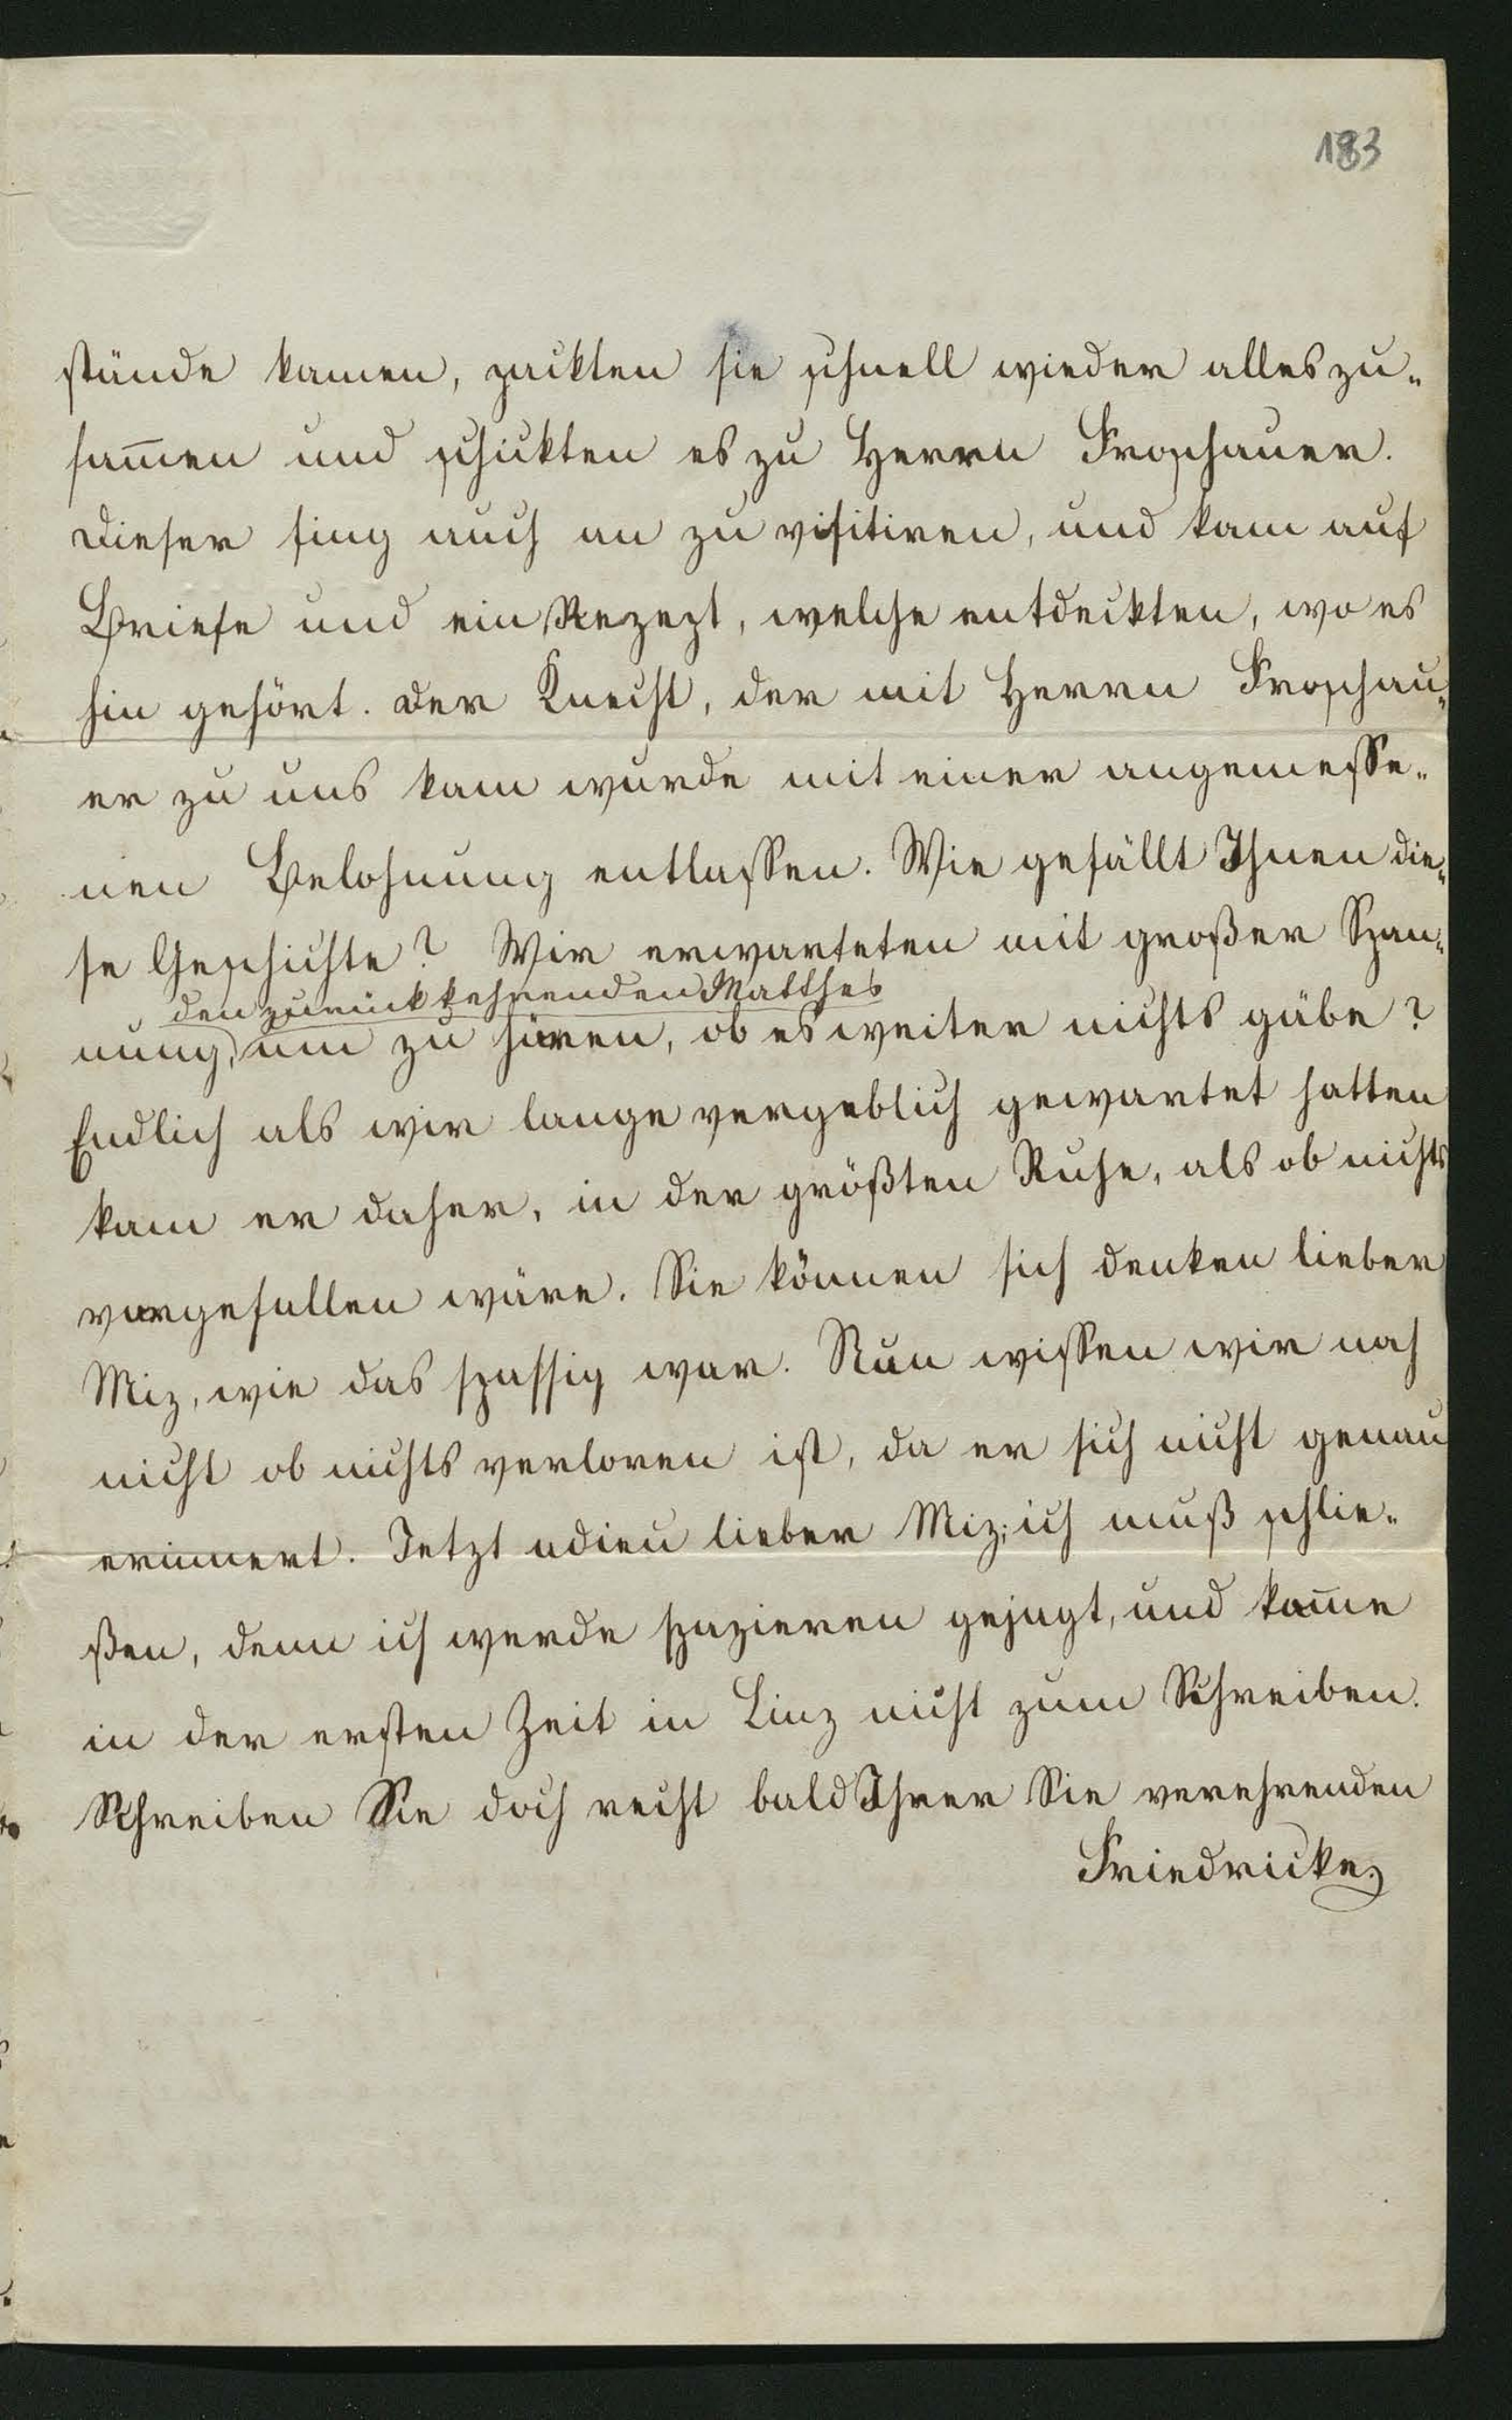 183
stände kamen, packten sie schnell wieder alles zu-
sam̅en und schickten es zu Herrn Froschauer.
Dieser fing auch an zu visitiren, und kam auf
Briefe und ein Rezept, welche entdeckten, wo es
hin gehört. Der Knecht, der mit Herrn Froschau-
er zu uns kam wurde mit einer angemesse-
nen Belohnung entlassen. Wie gefällt Ihnen die-
se Geschichte? Wir erwarteten mit großer Span-
den zurückkehrenden Matthes
nung, um zu hören, ob es weiter nichts gäbe?
Endlich als wir lange vergeblich gewartet hatten
kam er daher, in der größten Ruhe, als ob nichts
vorgefallen wäre. Sie können sich denken lieber
Miz, wie das spassig war. Nun wissen wir noch
nicht ob nichts verloren ist, da er sich nicht genau
erinnert. Jetzt adieu lieber Miz; ich muß schlie-
ßen, denn ich werde spazieren gejagt, und kom̅e
in der ersten Zeit in Linz nicht zum Schreiben.
Schreiben Sie doch recht bald Ihrer Sie verehrenden
Friedricke.